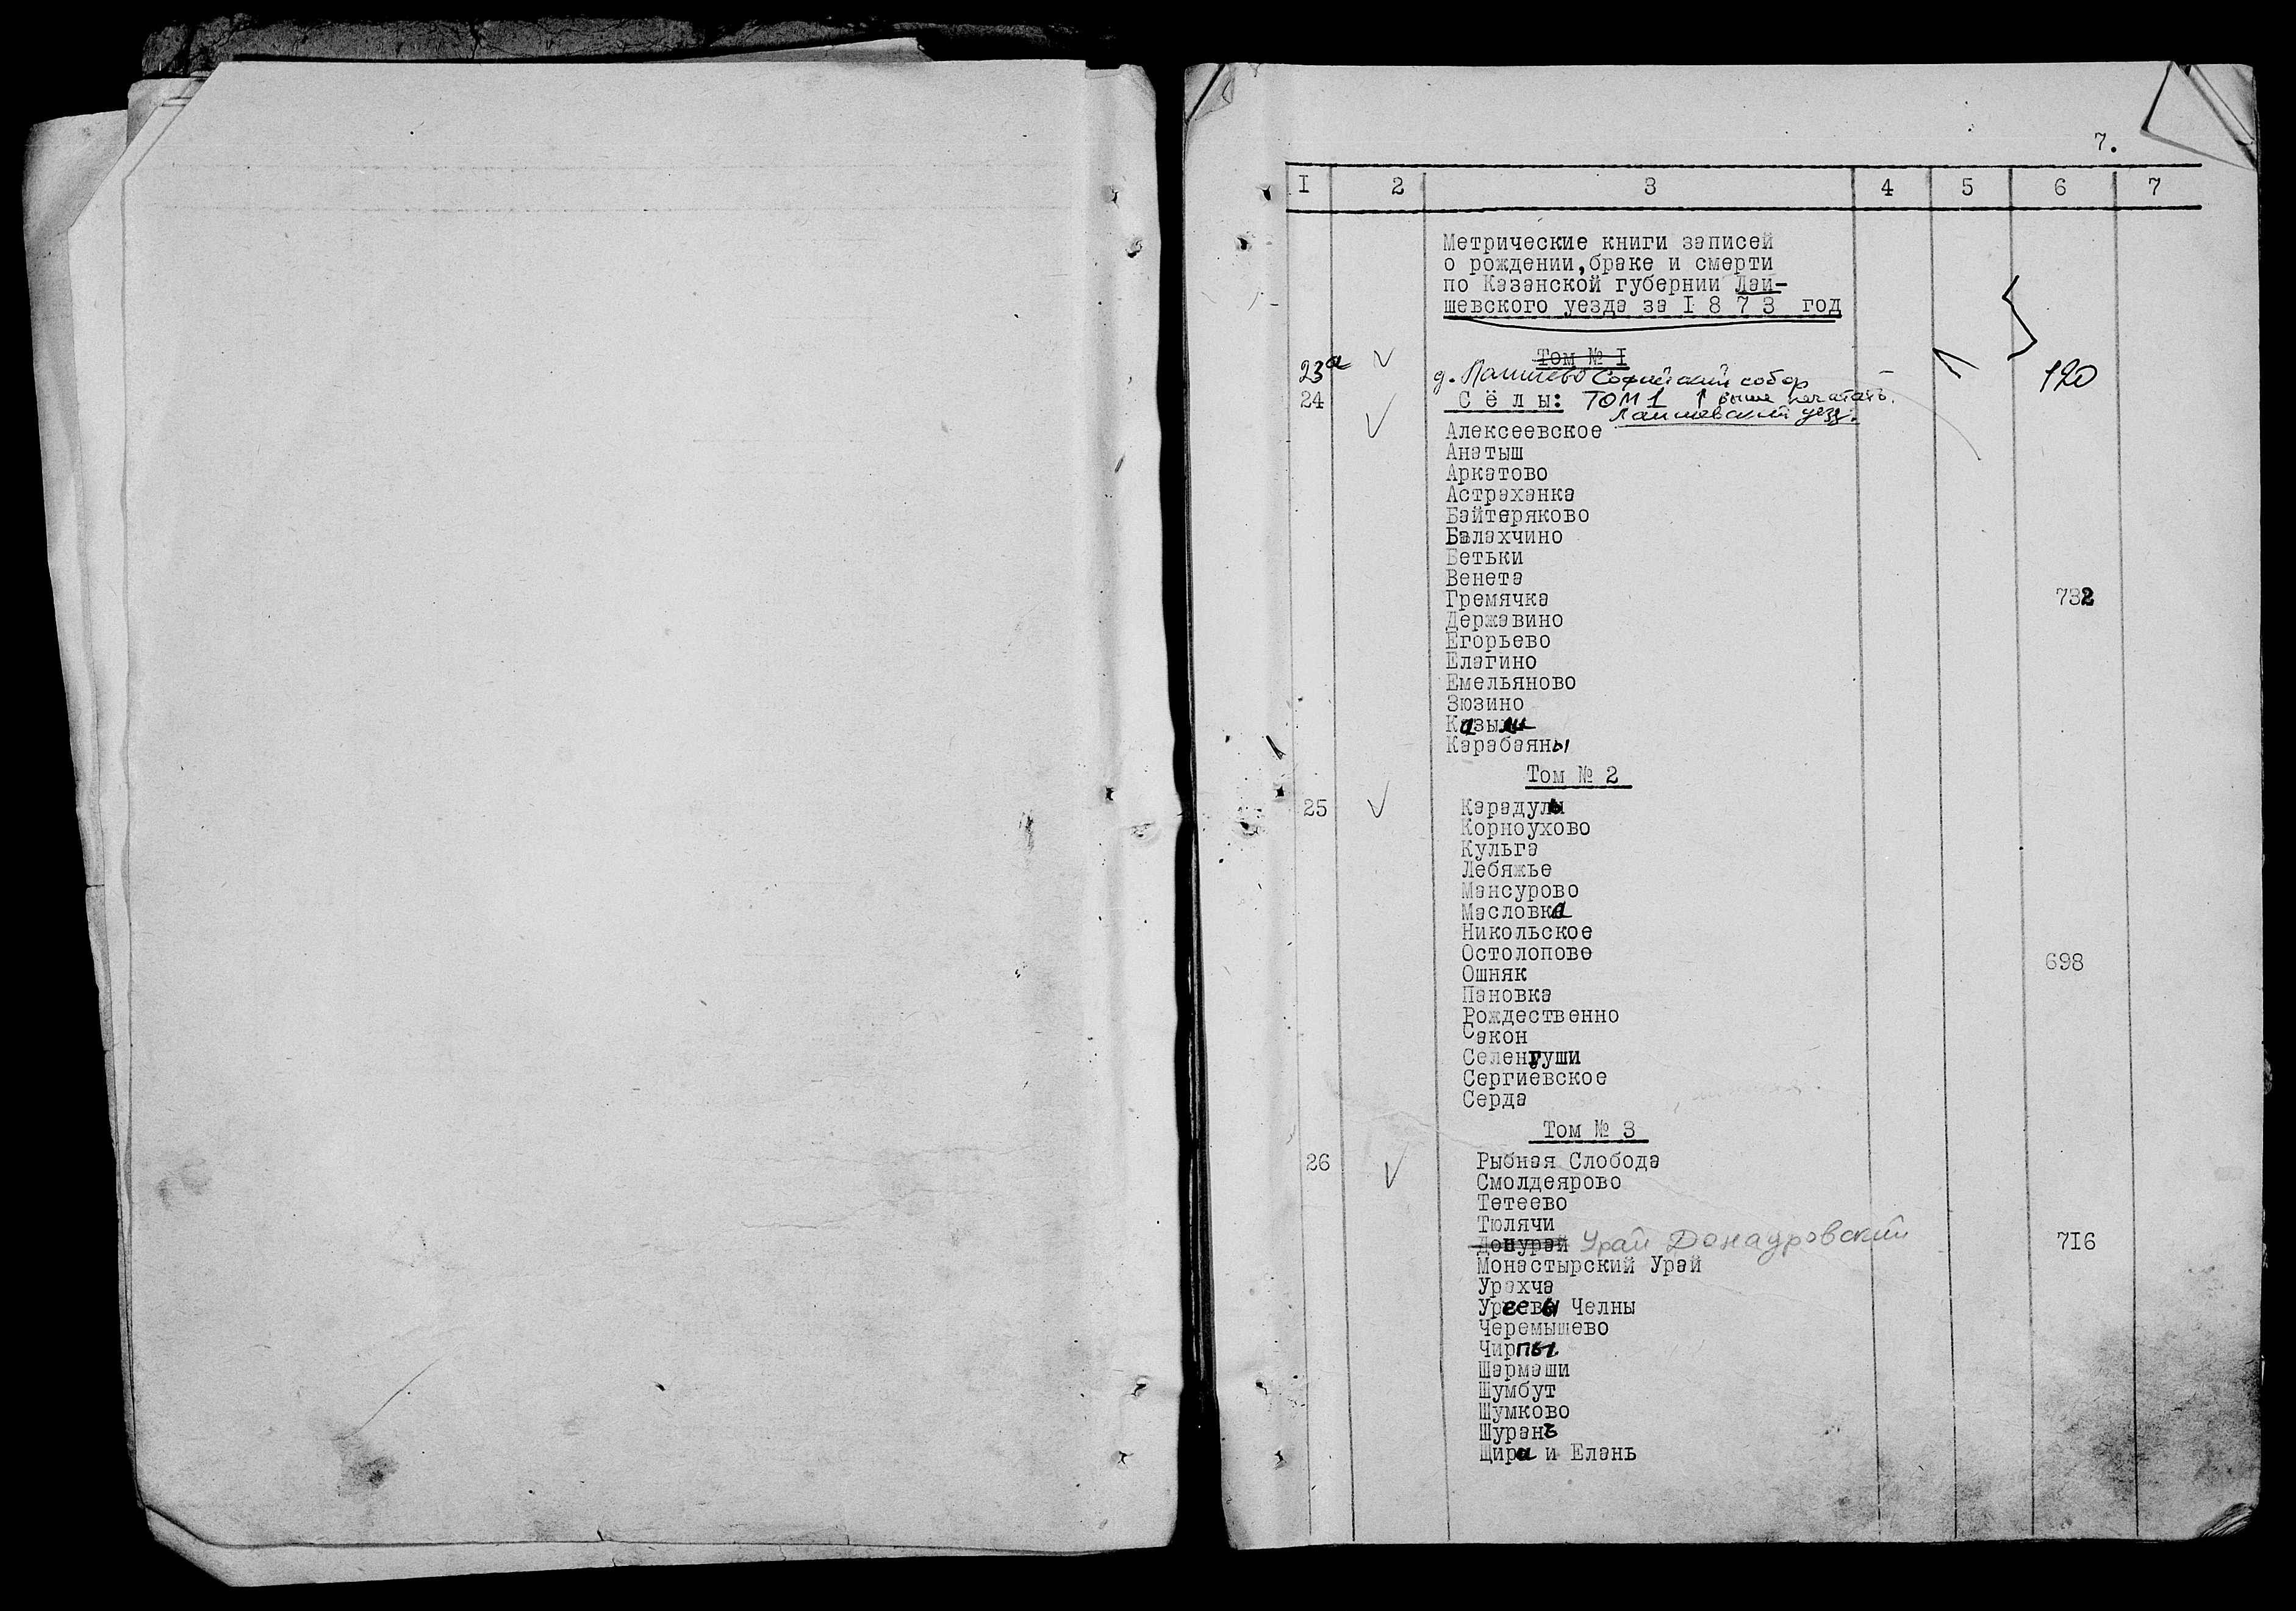 7.
I 2 3 4 5 6 7
Метрические книги записей
о рождении,браке и смерти
по Казанской губернии Лаи-
шевского уезда за I 8 7 3 год
Том № I
23а г. Лаишево Софийский собор 120
24 С ё л ы: ТОМ 1 ↑ выше печатать.
Лаишевский уезд.
Алексеевское
Анатыш
Аркатово
Астраханка
Байтеряково
Балахчино
Бетьки
Венета
Гремячка 732
Державино
Егорьево
Елагино
Емельяново
Зюзино
Казыли
Карабаяны
Том № 2
25 Карадули
Корноухово
Кульга
Лебяжье
Мансурово
Масловка
Никольское
Остолопово
Ошняк 698
Пановка
Рождественно
Сакон
Селенгуши
Сергиевское
Серда
Том № 3
26 Рыбная Слобода
Смолдеярово
Тетеево
Тюлячи
Донурай Урай Донауровский 7I6
Монастырский Урай
Урахча
Уреевы Челны
Черемышево
Чирпы
Шармаши
Шумбут
Шумково
Шурань
Щира и Елань